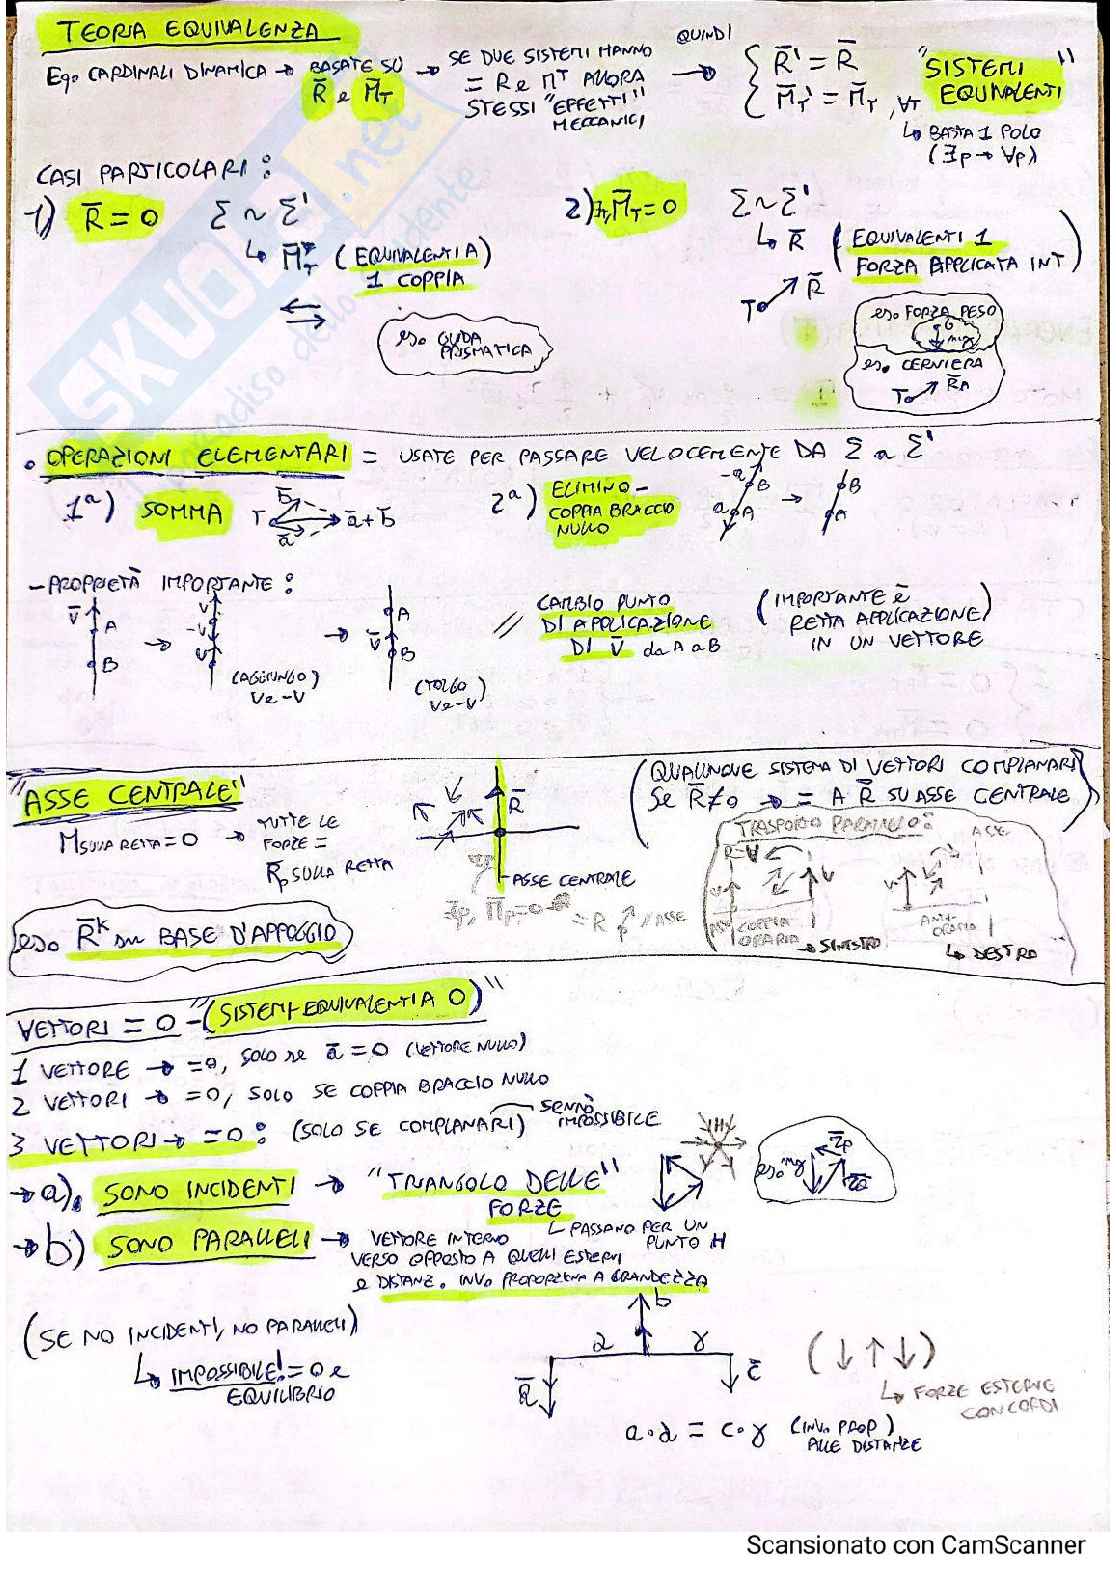 TEORIA EQUIVALENZA
Eq. CARDINALI DINAMICA → BASATE SU R̅ e M̅_T → SE DUE SISTEMI HANNO = R e M^T ALLORA STESSI "EFFETTI" MECCANICI
QUINDI → { R̅' = R̅
M̅_T' = M̅_T, ∀T
"SISTEMI EQUIVALENTI"
↳ BASTA 1 POLO
(∃p → ∀p)
CASI PARTICOLARI:
1) R̅ = 0 Σ ~ Σ'
↳ M̅_T (EQUIVALENTI A)
1 COPPIA
es. GUIDA PRISMATICA
2) M̅_T = 0 Σ ~ Σ'
↳ R̅ (EQUIVALENTI 1
FORZA APPLICATA IN T)
T R̅
es. FORZA PESO
G
mg
es. CERNIERA
T R̅A
• OPERAZIONI ELEMENTARI = USATE PER PASSARE VELOCEMENTE DA Σ a Σ'
1ª) SOMMA
T b̅ a̅ a̅+b̅
2ª) ELIMINO COPPIA BRACCIO NULLO
-a B a A → B A
- PROPRIETÀ IMPORTANTE:
v̅ A B → v -v v → A v̅ B
(AGGIUNGO)
V e -V
(TOLGO)
V e -V
// CAMBIO PUNTO
DI APPLICAZIONE
DI v̅ da A a B
(IMPORTANTE È
RETTA APPLICAZIONE)
IN UN VETTORE
"ASSE CENTRALE"
M SULLA RETTA = 0 → TUTTE LE
FORZE =
R̅p SULLA RETTA
R̅
ASSE CENTRALE
∃p, M̅p = 0 = R // ASSE
(QUALUNQUE SISTEMA DI VETTORI COMPLANARI)
SE R̅ ≠ 0 → = A R̅ SU ASSE CENTRALE
TRASPORTO PARALLELO:
ASSE
R = V
v
COPPIA
ORARIA → SINISTRO
v
ANTI-
ORARIO
↳ DESTRO
es. R̅^k su BASE D'APPOGGIO
VETTORI = 0 - "(SISTEMI EQUIVALENTI A 0)"
1 VETTORE → = 0, SOLO SE a̅ = 0 (VETTORE NULLO)
2 VETTORI → = 0, SOLO SE COPPIA BRACCIO NULLO
3 VETTORI → = 0: (SOLO SE COMPLANARI) SENNÒ IMPOSSIBILE
H
→ a). SONO INCIDENTI → "TRIANGOLO DELLE"
FORZE
↳ PASSANO PER UN
PUNTO H
es. mg
→ b) SONO PARALLELI → VETTORE INTERNO
VERSO OPPOSTO A QUELLI ESTERNI
e DISTANZ. INV. PROPORZION A GRANDEZZA
(SE NO INCIDENTI, NO PARALLELI)
↳ IMPOSSIBILE! = 0 e
EQUILIBRIO
b
α γ
a̅ c̅
(↓↑↓)
↳ FORZE ESTERNE
CONCORDI
a·α = c·γ (INV. PROP)
ALLE DISTANZE
Scansionato con CamScanner
SKUOLA.net